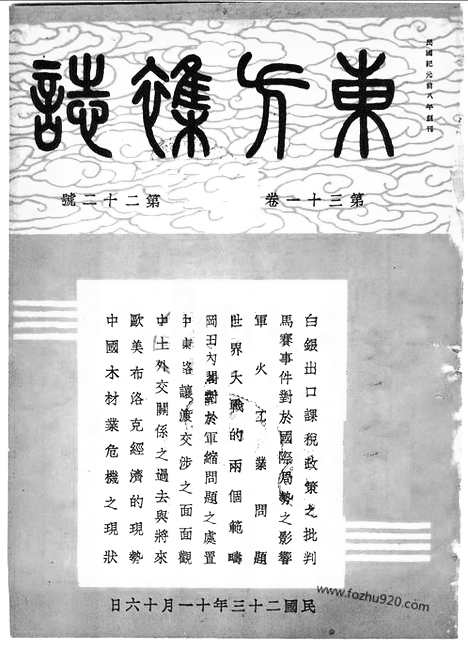 民國紀元前八年創刊
東方雜誌
第三十一卷 第二十二號
白銀出口課稅政策之批判
馬賽事件對於國際局勢之影響
軍火工業問題
世界大戰的兩個範疇
岡田內閣對於軍縮問題之處置
中東路讓渡交涉之面面觀
中土外交關係之過去與將來
歐美布洛克經濟的現勢
中國木材業危機之現狀
民國二十三年十一月十六日
www.fozhu920.com